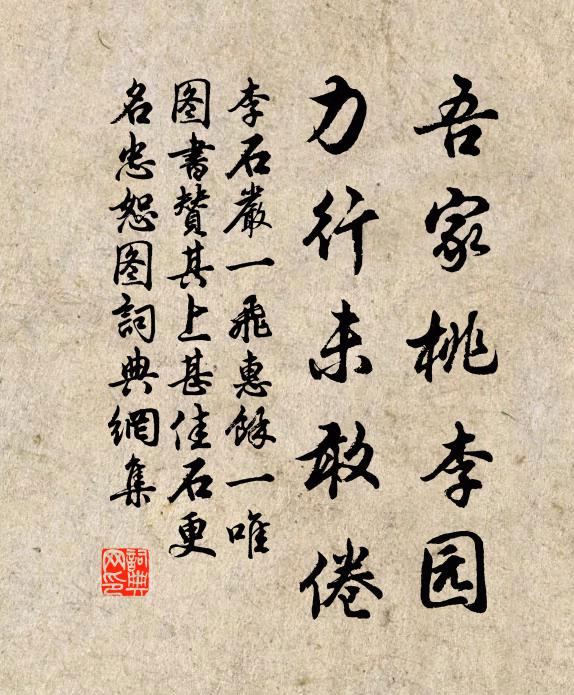 吾家桃李园
力行未敢倦
李石嚴一飛惠餘一唯
图書贊其上甚佳石更
名忠恕图詞典網集
詞典网印